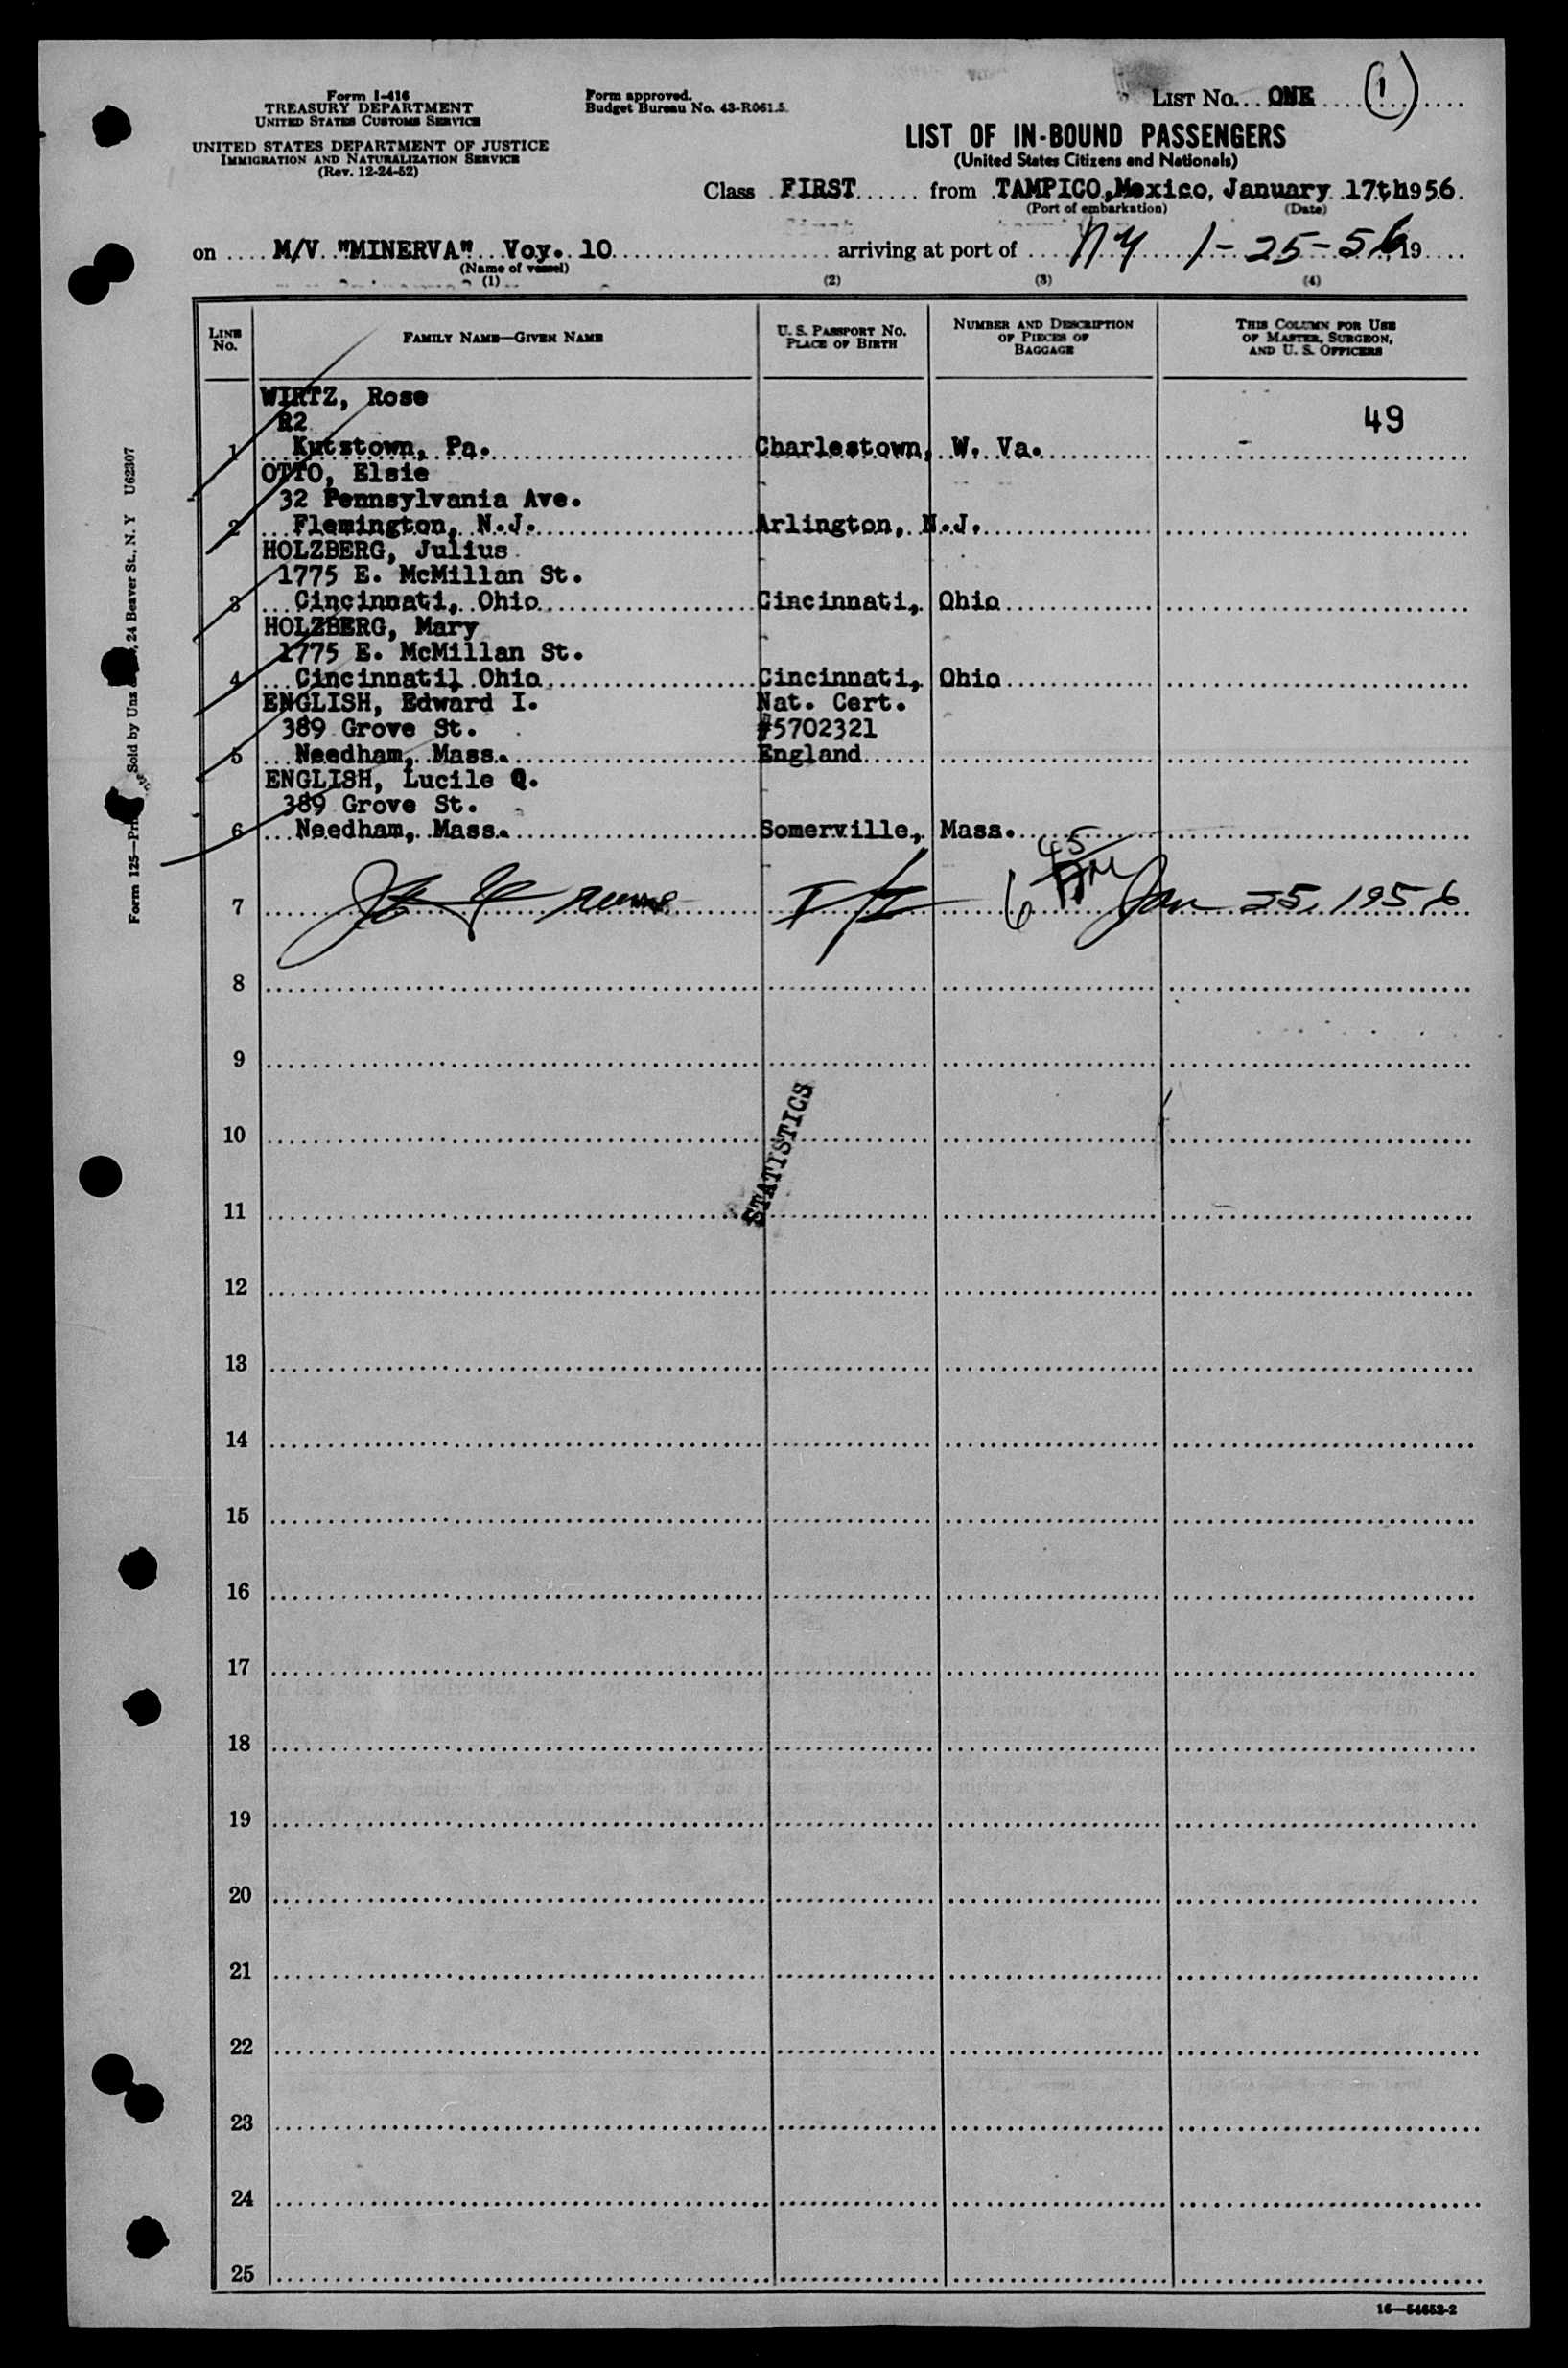 Form I-416
TREASURY DEPARTMENT
UNITED STATES CUSTOMS SERVICE
UNITED STATES DEPARTMENT OF JUSTICE
IMMIGRATION AND NATURALIZATION SERVICE
(Rev. 12-24-52)
Form approved.
Budget Bureau No. 43-R061.5.
LIST No. ONE (1)
LIST OF IN-BOUND PASSENGERS
(United States Citizens and Nationals)
Class FIRST from TAMPICO, Mexico, January 17th 1956.
(Port of embarkation) (Date)
on M/V "MINERVA" Voy. 10 arriving at port of NY 1-25-56 19
(Name of vessel)
(1) (2) (3) (4)
LINE No. FAMILY NAME—GIVEN NAME U. S. PASSPORT NO. PLACE OF BIRTH NUMBER AND DESCRIPTION OF PIECES OF BAGGAGE THIS COLUMN FOR USE OF MASTER, SURGEON, AND U. S. OFFICERS
WIRTZ, Rose
R2 49
1 Kutztown, Pa. Charlestown, W. Va.
OTTO, Elsie
32 Pennsylvania Ave.
2 Flemington, N.J. Arlington, N.J.
HOLZBERG, Julius
1775 E. McMillan St.
3 Cincinnati, Ohio Cincinnati, Ohio
HOLZBERG, Mary
1775 E. McMillan St.
4 Cincinnati, Ohio Cincinnati, Ohio
ENGLISH, Edward I. Nat. Cert.
389 Grove St. #5702321
5 Needham, Mass. England
ENGLISH, Lucile Q.
389 Grove St.
6 Needham, Mass. Somerville, Mass.
7 6 45 AM Jan 25, 1956
8
9
10
STATISTICS
11
12
13
14
15
16
17
18
19
20
21
22
23
24
25
16—54653-2
Form 125—Sold by 24 Beaver St., N. Y U62307